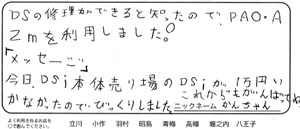 DSの修理ができると知ったので、PAO・A
Zmを利用しました。
「メッセージ」
今日、DSi本体売り場のDSiが1万円い
かなかったのでびっくりしました。これからもがんばってね
ニックネーム かんちゃん
よく利用されるお店を○で囲んでください。 立川 小作 羽村 昭島 青梅 高幡 堀之内 八王子